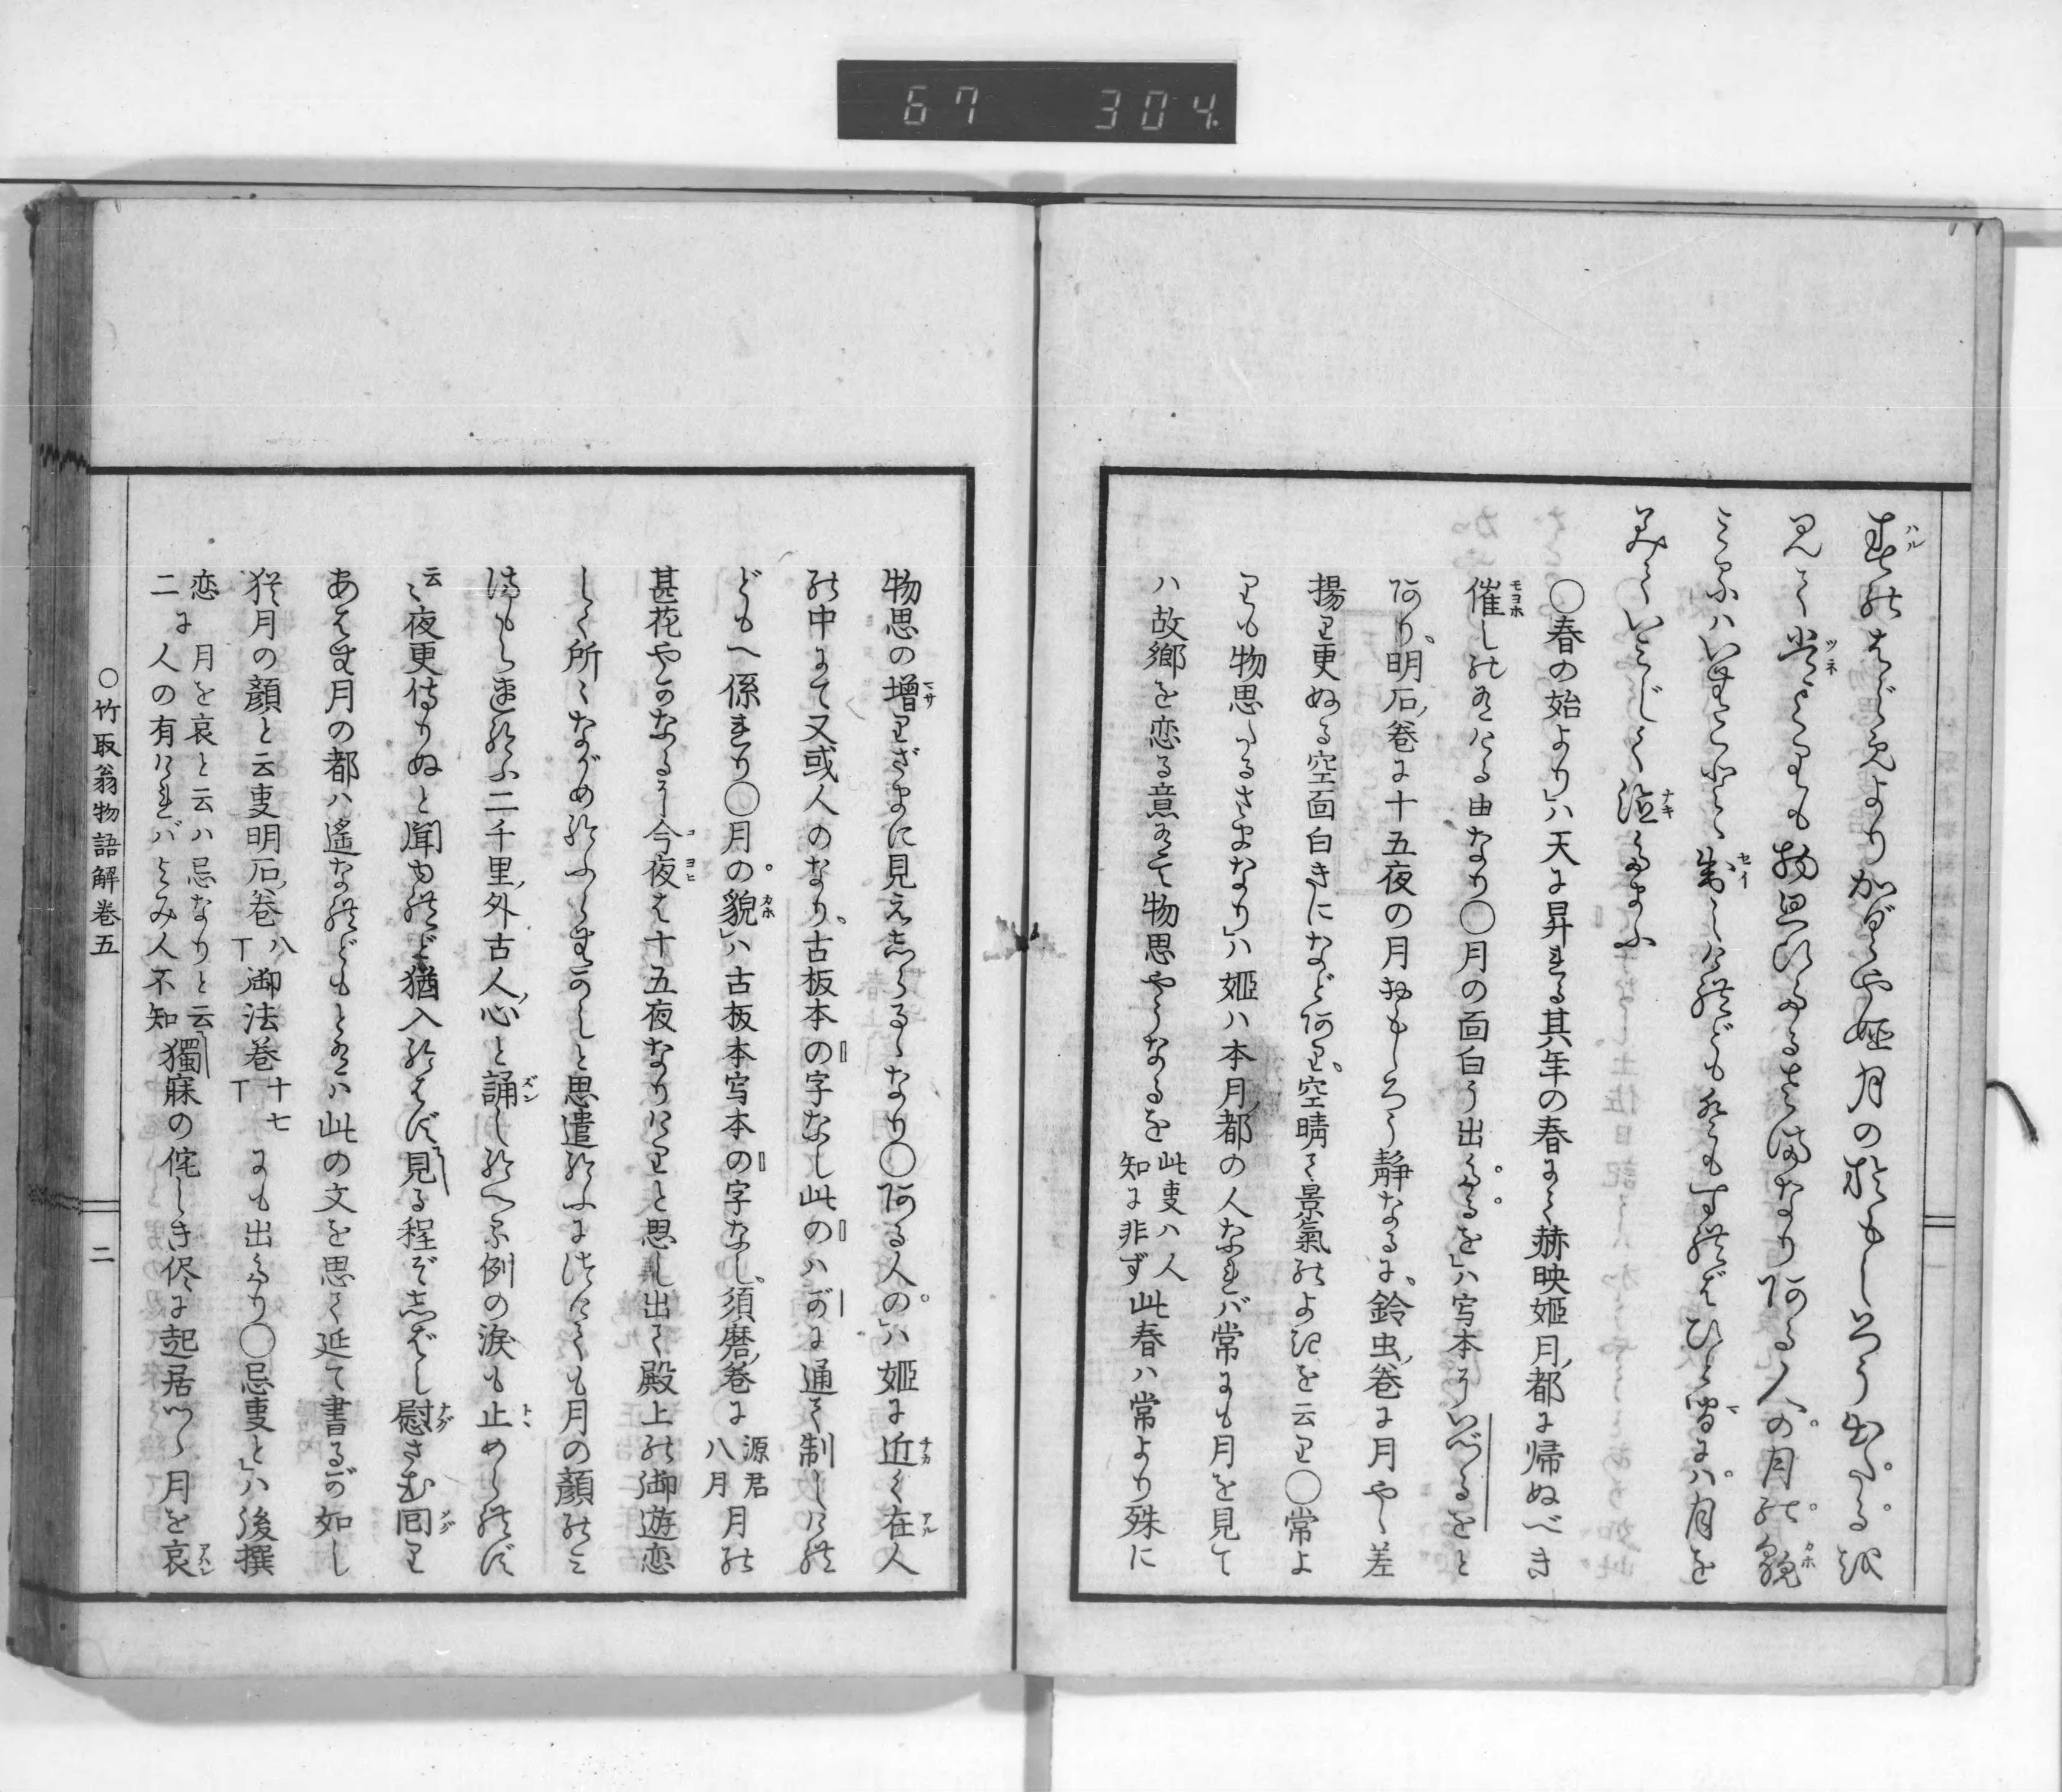 67 304
春のはじめよりかぐや姫月のおもしろう出たるを
見て常よりも物思ひたるさまなりある人の月の貌
みるハいむことゝ制しけれどもともすればひとまにハ月を
みていみじく泣たまふ
〇春の始より」ハ天に昇れる其年の春にて赫映姫月都に帰ぬべき
催しの有ける由なり〇月の面白う出たるを」ハ写本にいづるをと
あり、明石巻に十五夜の月おもしろう静なるに、鈴虫巻に月やゝ差
揚り更ぬる空面白きになどあり、空晴て景氣のよきを云り〇常よ
りも物思たるさまなり」ハ姫ハ本月都の人なれバ常にも月を見て
ハ故郷を恋る意有て物思やうなるを此事ハ人知に非ず此春ハ常より殊に
物思の増りざまに見え志らるゝなり〇ある人の」ハ姫に近く在人
の中にて又或人のなり、古板本の字なし此のハがに通て制しけれ
どもへ係れり〇月の貌」ハ古板本写本の字なし、須磨巻に源君八月月の
甚花やかなるに今夜は十五夜なりけりと思し出て殿上の御遊恋
しく所々ながめ給ふらむかしと思遣給ふにつけても月の顔のみ
まもられ給ふ二千里外古人心と誦し給へる例の涙も止められず
云々夜更侍りぬと聞ゆれど猶入給はず見る程ぞ志ばし慰さむ回り
あはむ月の都ハ遙なれどもとあるハ此の文を思て延て書るが如し
猶月の顔と云事明石巻八丁御法巻十七丁にも出たり〇忌事と」ハ後撰
恋二に月を哀と云ハ忌なりと云人の有けれバよみ人不知獨寐の侘しき侭に起居つゝ月を哀
〇竹取翁物語解巻五
二